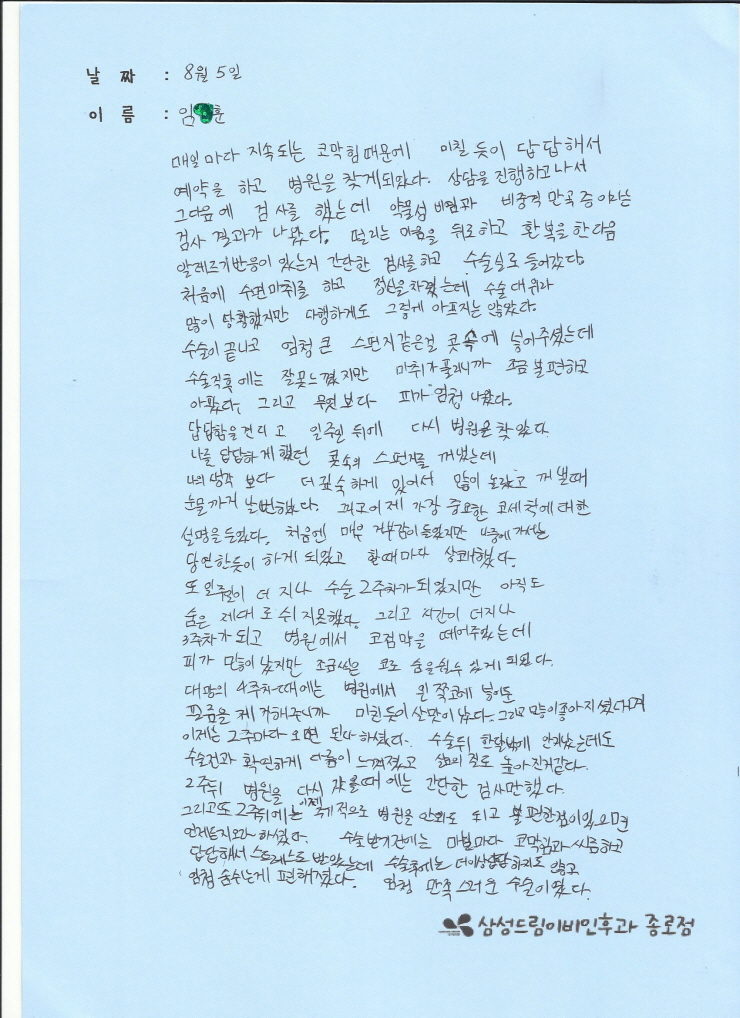 날 짜 : 8월 5일
이 름 : 임 훈
매일 마다 지속되는 코막힘 때문에 미칠 듯이 답답해서
예약을 하고 병원을 찾게되었다. 상담을 진행하고 나서
그다음에 검사를 했는데 약물성 비염과 비중격 만곡증 이라는
검사 결과가 나왔다. 떨리는 마음을 뒤로하고 환복을 한다음
알레르기반응이 있는지 간단한 검사를 하고 수술실로 들어갔다.
처음에 수면마취를 하고 정신을차렸는데 수술대위라
많이 당황했지만 다행하게도 그렇게 아프지는 않았다.
수술이 끝나고 엄청 큰 스펀지같은걸 콧속에 넣어주셨는데
수술직후에는 잘못느꼈지만 마취가풀리니까 조금 불편하고
아팠다. 그리고 무엇보다 피가 엄청 나왔다.
답답함을 견디고 일주일 뒤에 다시 병원을 찾았다.
나를 답답하게했던 콧속의 스펀지를 꺼냈는데
나의 생각 보다 더 깊숙하게 있어서 많이 놀랐고 꺼낼때
눈물까지 날뻔했다. 그리고 이제 가장 중요한 코세척에 대한
설명을 들었다. 처음엔 매우 거부감이 들었지만 나중에 가서는
당연한듯이 하게 되었고 할때마다 상쾌했다.
또 일주일이 더 지나 수술 2주차가 되었지만 아직도
숨은 제대로 쉬지못했다. 그리고 시간이 더지나
3주차가 되고 병원에서 코점막을 떼어주셨는데
피가 많이 났지만 조금씩은 코로 숨을쉴수 있게 되었다.
대망의 4주차때에는 병원에서 왼쪽코에 넣어둔
제거해주니까 미친듯이 살만이 났다. 그리고 많이좋아지셨다며
이제는 2주마다 오면 된다 하셨다. 수술뒤 한달밖에 안지났는데도
수술전과 확연하게 다름이 느껴졌고 삶의 질도 높아진거같다.
2주뒤 병원을 다시 갔을때 에는 간단한 검사만했다.
그리고또 2주뒤에는 이제 주기적으로 병원을 안와도 되고 불편한점이있으면
언제든지오라 하셨다. 수술받기전에는 마다 코막힘과 씨름하고
답답해서 스트레스도 받았는데 수술후에는 더이상답답하지도 않고
엄청 숨쉬는게 편해졌다. 엄청 만족스러운 수술이었다.
삼성드림이비인후과 종로점